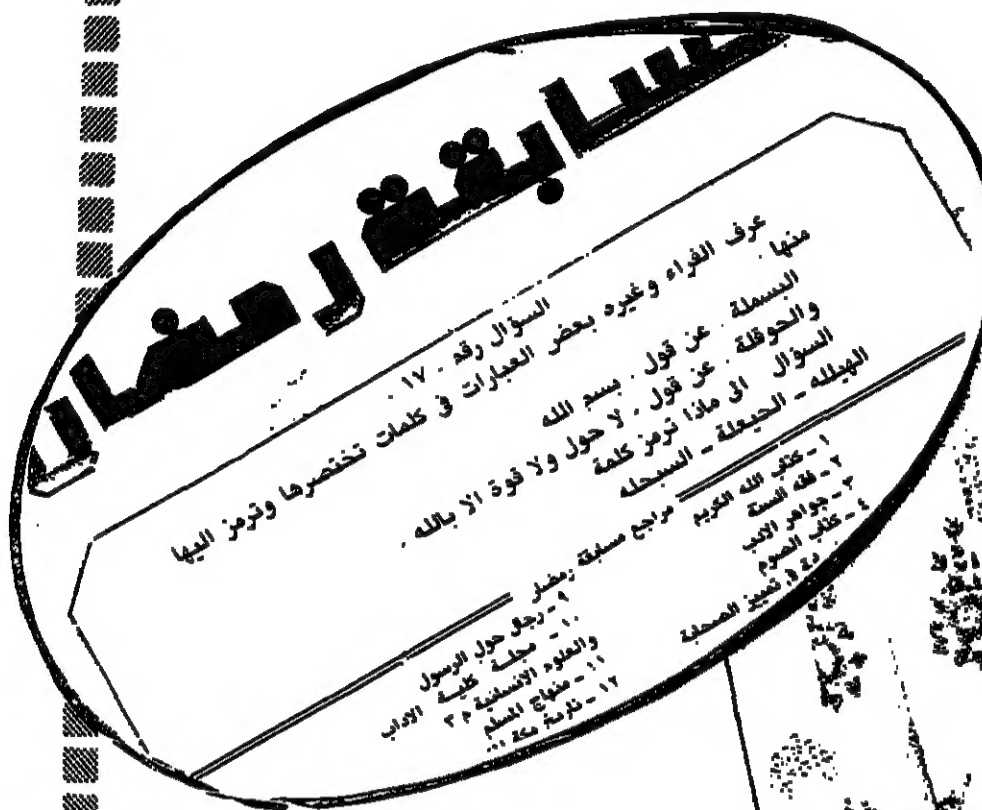 مسابقة رمضان
السؤال رقم - ١٧
عرف الفراء وغيره بعض العبارات في كلمات تختصرها وترمز اليها
منها .
البسملة . عن قول . بسم الله
والحوقلة . عن قول . لا حول ولا قوة الا بالله .
السؤال الى ماذا ترمز كلمة
الهيلله - الحيعلة - السبحله
مراجع مسابقة رمضان
١ - كتاب الله الكريم
٢ - فقه السنة
٣ - جواهر الادب
٤ - كتاب الصوم
في تمييز الصحابة
٩ - رجال حول الرسول
١٠ - مجلة كلية الاداب
والعلوم الانسانية م ٣
١١ - منهاج المسلم
١٢ - تاريخ مكة ...